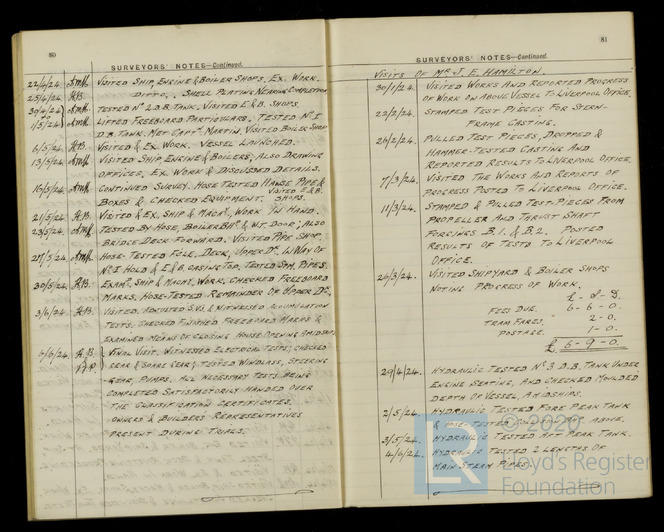 80
SURVEYORS' NOTES—Continued.
22/4/24. AMK. VISITED SHIP, ENGINE & BOILER SHOPS. EX. WORK.
25/4/24. H.B. DITTO. SHELL PLATING NEARING COMPLETION
30/4/24 AMK. TESTED Nº 2 D.B. TANK. VISITED E & B. SHOPS.
1/5/24. AMK. LIFTED FREEBOARD PARTICULARS. TESTED Nº 1
D.B. TANK. MET CAPT. MARTIN. VISITED BOILER SHOP
6/5/24. H.B. VISITED & EX. WORK. VESSEL LAUNCHED.
13/5/24. AMK. VISITED SHIP, ENGINE & BOILERS; ALSO DRAWING
OFFICES, EX. WORK & DISCUSSED DETAILS.
16/5/24. AMK. CONTINUED SURVEY. HOSE TESTED HAWSE PIPE &
BOXES & CHECKED EQUIPMENT. VISITED E & B. SHOPS.
21/5/24. H.B. VISITED & EX. SHIP & MACHY, WORK IN HAND.
23/5/24. AMK. TESTED BY HOSE, BOILER BHD & W.T. DOOR; ALSO
BRIDGE DECK FORWARD. VISITED PIPE SHOP.
27/5/24. AMK. HOSE TESTED FCLE, DECK, UPPER DK. IN WAY OF
Nº 1 HOLD & E & B. CASING TOP. TESTED STM. PIPES.
30/5/24. H.B. EXAMD. SHIP & MACHY. WORK. CHECKED FREEBOARD
MARKS. HOSE-TESTED REMAINDER OF UPPER DK.
3/6/24. H.B. VISITED. ADJUSTED S.VS. & WITNESSED ACCUMULATION
TESTS. CHECKED FINISHED FREEBOARD MARKS &
EXAMINED MEANS OF CLOSING HOUSE OPENING AMIDSHIPS.
6/6/24. H.B. FINAL VISIT. WITNESSED ELECTRICAL TESTS; CHECKED
GEAR & SPARE GEAR; TESTED WINDLASS, STEERING
GEAR, PUMPS. ALL NECESSARY TESTS BEING
COMPLETED SATISFACTORILY HANDED OVER
THE CLASSIFICATION CERTIFICATES.
OWNERS & BUILDERS REPRESENTATIVES
PRESENT DURING TRIALS.
81
SURVEYORS' NOTES—Continued.
VISITS OF MR J. E. HAMILTON.
30/1/24. VISITED WORKS AND REPORTED PROGRESS
OF WORK ON ABOVE VESSEL TO LIVERPOOL OFFICE.
22/2/24. STAMPED TEST PIECES FOR STERN-
FRAME CASTING.
26/2/24. PULLED TEST PIECES, DROPPED &
HAMMER-TESTED CASTING AND
REPORTED RESULTS TO LIVERPOOL OFFICE
7/3/24. VISITED THE WORKS AND REPORTS OF
PROGRESS POSTED TO LIVERPOOL OFFICE.
11/3/24. STAMPED & PULLED TEST-PIECES FROM
PROPELLER AND THRUST SHAFT
FORGINGS B.1. & B.2. POSTED
RESULTS OF TESTS TO LIVERPOOL
OFFICE.
26/3/24. VISITED SHIPYARD & BOILER SHOPS
NOTING PROGRESS OF WORK.
£ - S - D.
FEES DUE. 6 - 6 - 0.
TRAM FARES. 2 - 0.
POSTAGE. 1 - 0.
£ 6 - 9 - 0.
29/4/24. HYDRAULIC TESTED Nº 3 D.B. TANK UNDER
ENGINE SEATING, AND CHECKED MOULDED
DEPTH OF VESSEL, AMIDSHIPS.
2/5/24. HYDRAULIC TESTED FORE PEAK TANK
& HOSE TESTED ABOVE.
3/5/24. HYDRAULIC TESTED AFT PEAK TANK.
4/6/24. HYDRAULIC TESTED 2 LENGTHS OF
MAIN STEAM PIPES.
© 2020
LR
Lloyd's Register
Foundation